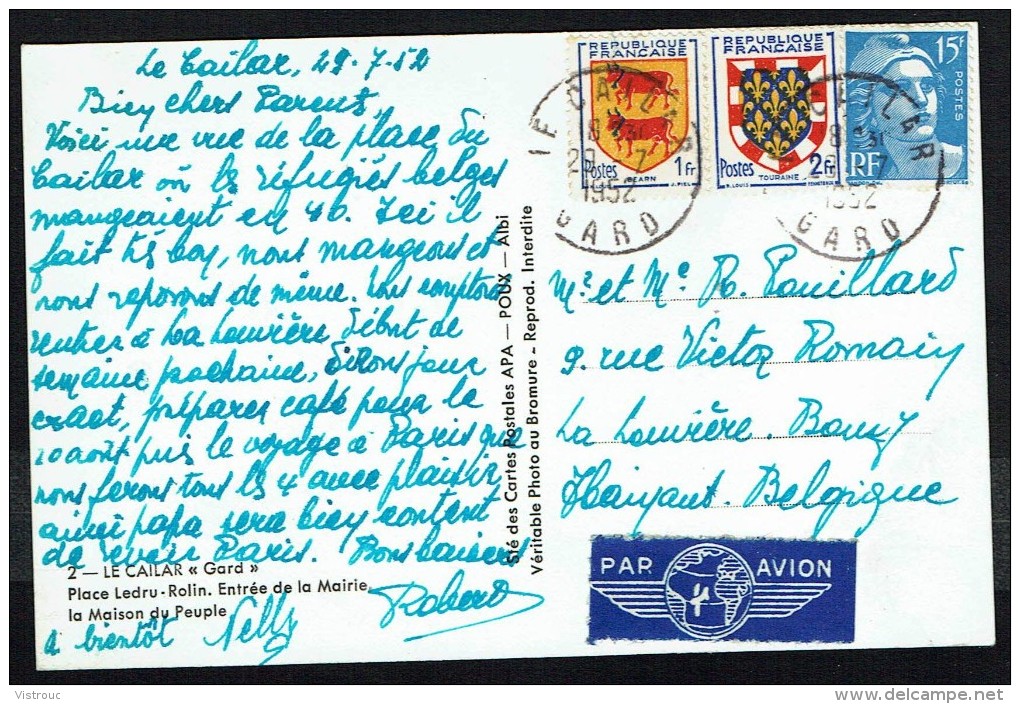 Le Cailar, 29-7-52
Bien chers Parents,
Voici une vue de la place du
Cailar où les réfugiés belges
mangeaient en 40. Ici il
fait très bon, nous mangeons et
nous reposons de même. Nous comptons
rentrer à La Louvière début de
semaine prochaine, dirons jour
exact, préparer café pour le
10 août puis le voyage à Paris que
nous ferons tous les 4 avec plaisir,
ainsi papa sera bien content
de revoir Paris. Bons baisers
2 — LE CAILAR « Gard »
Place Ledru-Rolin. Entrée de la Mairie
la Maison du Peuple
à bientôt Nelly Robert
Sté des Cartes Postales APA — POUX — Albi
Véritable Photo au Bromure - Reprod. Interdite
REPUBLIQUE FRANÇAISE
Postes 1Fr
BEARN
REPUBLIQUE FRANÇAISE
Postes 2Fr
TOURAINE
15F
POSTES
RF
LE CAILAR
1952
GARD
LE CAILAR
1952
GARD
Mr et Me R. Pouillard
9. rue Victor Romain
La Louvière. Bouvy
Hainaut. Belgique
PAR AVION
Visitrouc
www.delcampe.net